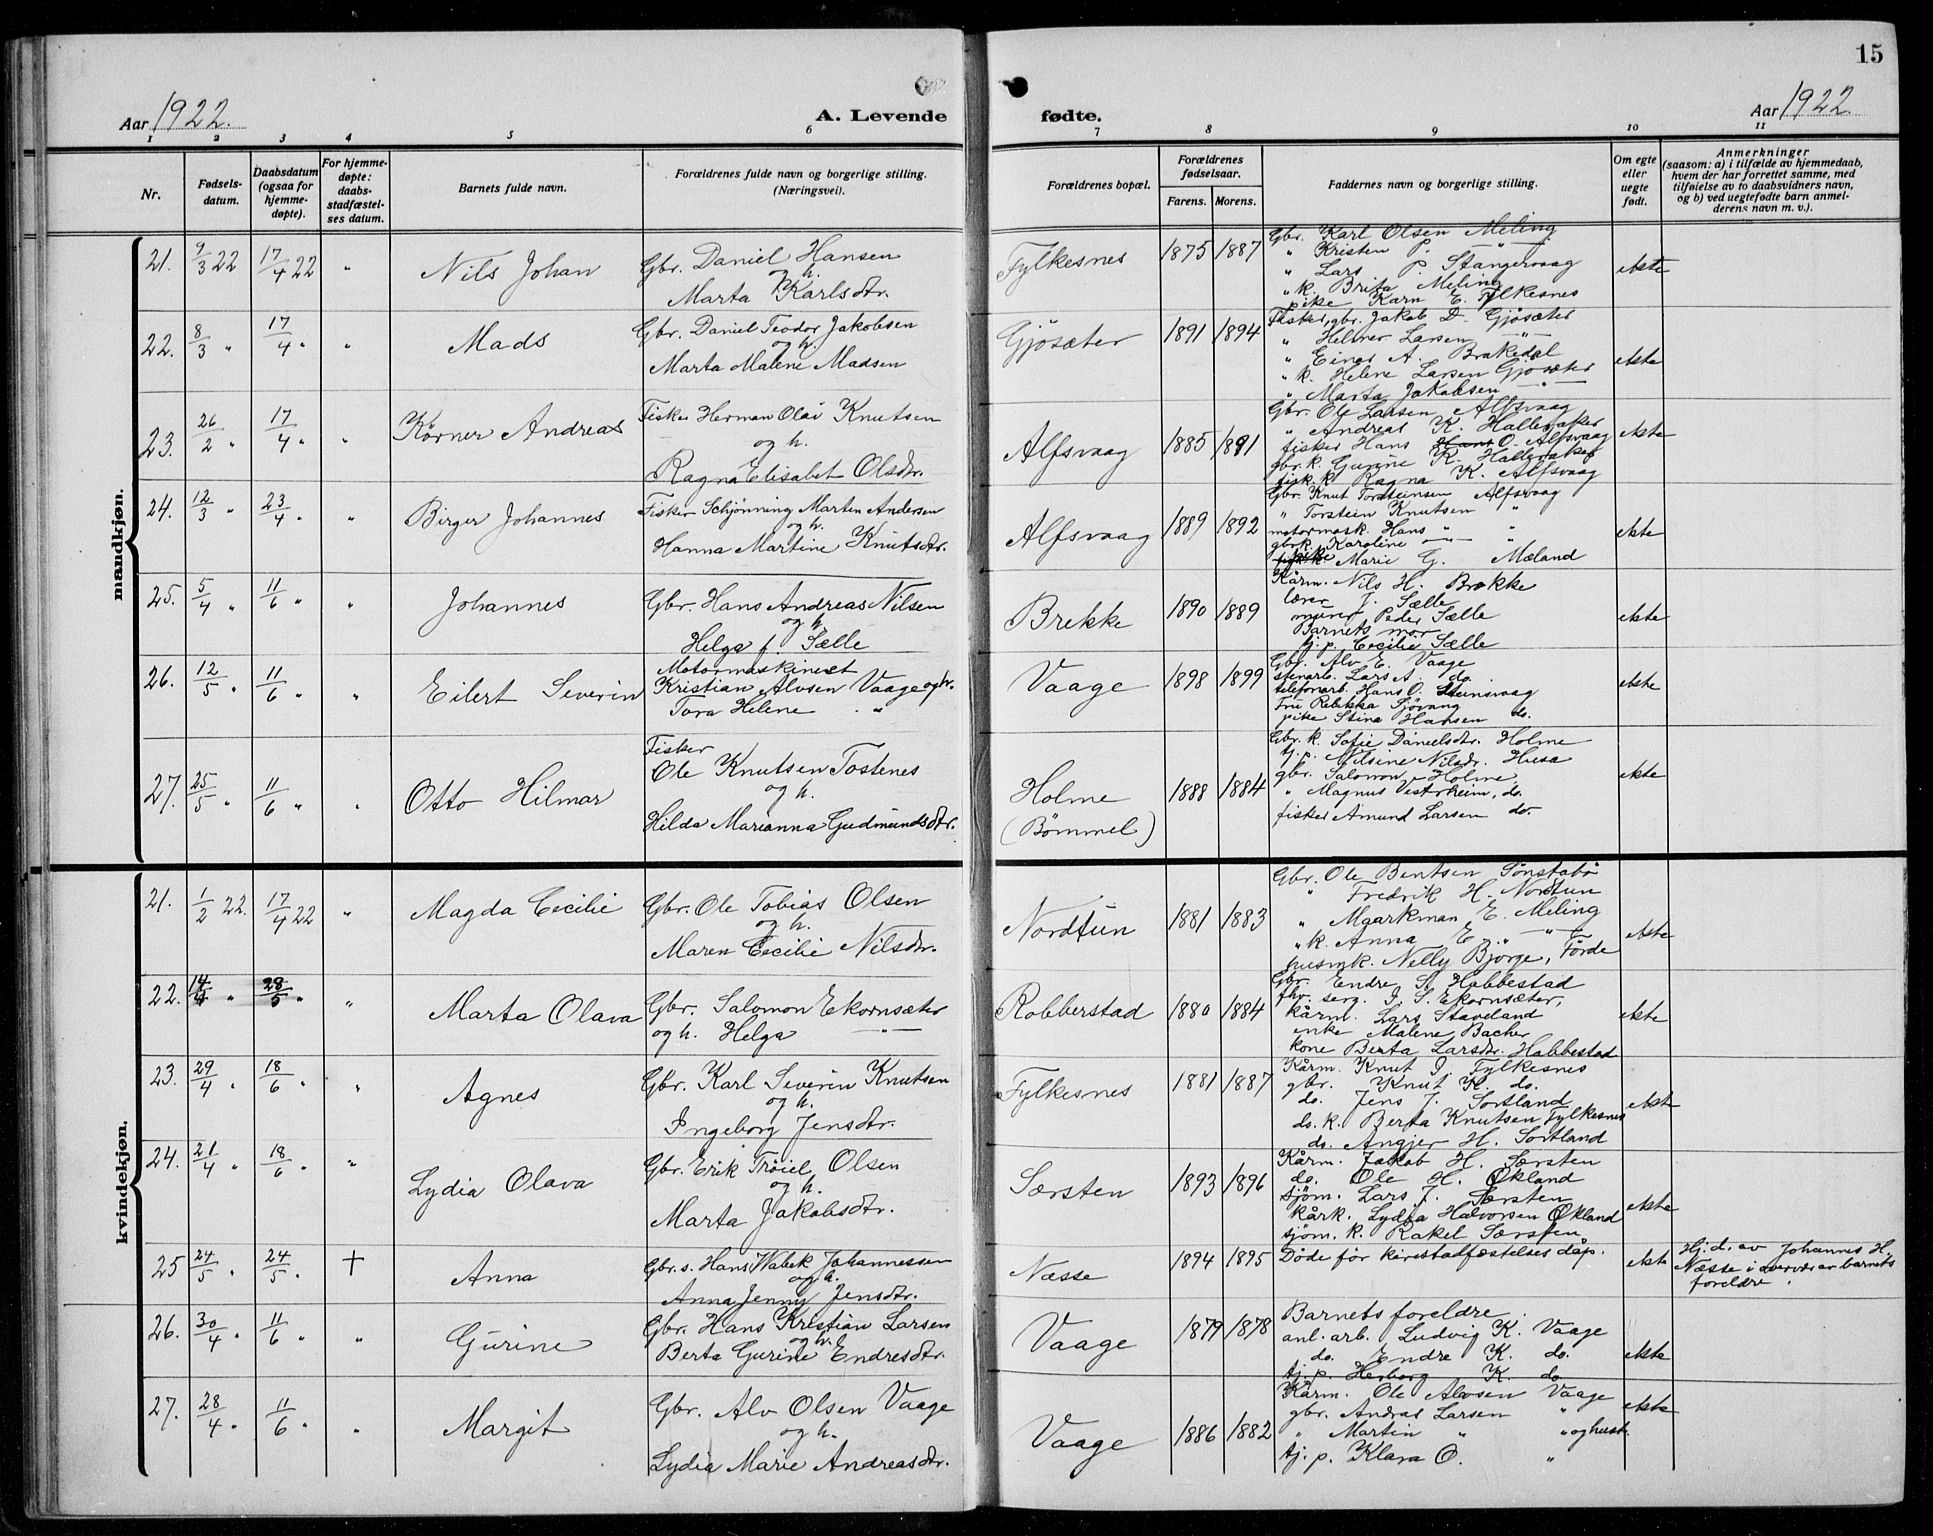 15
Aar 1922.
A. Levende
fødte.
Aar 1922.
1 2 3 4 5 6 7 8 9 10 11
Nr.
Fødsels-
datum.
Daabsdatum
(ogsaa for
hjemme-
døpte).
For hjemme-
døpte:
daabs-
stadfæstel-
ses datum.
Barnets fulde navn.
Forældrenes fulde navn og borgerlige stilling.
(Næringsvei).
Forældrenes bopæl.
Forældrenes
fødselsaar.
Farens. Morens.
Faddernes navn og borgerlige stilling.
Om egte
eller
uegte
født.
Anmerkninger
(saasom: a) i tilfælde av hjemmedaab,
hvem der har forrettet samme, med
tilføielse av to daabsvidners navn,
og b) ved uegtefødte barn anmel-
derens navn m. v.).
mandkjøn.
21. 9/3 22 17/4 22 " Nils Johan
Gbr. Daniel Hansen
og h.
Marta Karlsdtr.
Fylkesnes 1875 1887
Gbr. Karl Olsen Meling
" Kristen P. —"—
" Lars P. Stangervaag
" k. Brita Meling
pike Karn E. Fylkesnes
ekte
22. 8/3 " 17/4 " " Mads
Gbr. Daniel Teodor Jakobsen
og h.
Marta Malene Madsen
Gjøsæter 1891 1894
Fisker, gbr. Jakob D. Gjøsæter
" Helmer Larsen —"—
" Einar A. Brakedal
" k. Helene Larsen Gjøsæter
" Marta Jakobsen —"—
ekte
23. 26/2 " 17/4 " " Kørner Andreas
Fisker Herman Olai Knutsen
og h.
Ragna Elisabet Olsdtr.
Alfsvaag 1885 1891
Gbr. Ole Larsen Alfsvaag
" Andreas K. Halleraker
fisker Hans O. Alfsvaag
gbr. k. Gurine K. Halleraker
fisk. k. Ragna K. Alfsvaag
ekte
24. 12/3 " 23/4 " " Birger Johannes
Fisker Schjønning Marten Andersen
og h.
Hanna Martine Knutsdtr.
Alfsvaag 1889 1892
Gbr. Knut Torsteinsen Alfsvaag
" Torstein Knutsen "
motormask. Hans " "
gbrk. Karoline —"— "
pike Marie G. Mæland
ekte
25. 5/4 " 11/6 " " Johannes
Gbr. Hans Andreas Nilsen
og h.
Helga f. Sælle
Brekke 1890 1889
Kårm. Nils H. Brekke
lærer J. Sælle
murer Peder Sælle
Barnets mor
tj. p. Cecilie Sælle
ekte
26. 12/5 " 11/6 " " Eilert Severin
Motormaskinist
Kristian Alvsen Vaage og h.
Tora Helene "
Vaage 1898 1899
Gbr. Alv E. Vaage
stenarb. Lars A. do.
telefonarb. Hans O. Steinsvaag
Fru Rebekka Sjøvang
pike Stina Hansen do.
ekte
27. 25/5 " 11/6 " " Otto Hilmar
Fisker
Ole Knutsen Tostenes
og h.
Hilda Marianna Gudmundsdtr.
Holme
(Bømmel)
1888 1884
Gbr. k. Sofie Danielsdtr. Holme
tj. p. Nilsine Nilsdr. Husa
gbr. Salomon Holme,
" Magnus Vestrheim, do.
fisker Amund Larsen do.
ekte
kvindekjøn.
21. 1/2 22. 17/4 22 " Magda Cecilie
Gbr. Ole Tobias Olsen
og h.
Maren Cecilie Nilsdtr.
Nordtun 1881 1883
Gbr. Ole Bentsen Sønstabø
" Fredrik H. Nordtun
" Maarkman E. Meling
" k. Anna E. " —"—
husmk. Nelly Bjørge, Førde
ekte
22. 14/4 " 28/5 " " Marta Olava
Gbr. Salomon Ekornsæter
og h. Helga —"—
Robberstad 1880 1884
Gbr. Endre S. Habbestad
fhv. serg. J. S. Ekornsæter,
kårm. Lars Staveland
enke Malene Bacher
kone Berta Larsdtr. Habbestad
ekte
23. 29/4 " 18/6 " " Agnes
Gbr. Karl Severin Knutsen
og h.
Ingeborg Jensdtr.
Fylkesnes 1881 1887
Kårm. Knut J. Fylkesnes
gbr. Knut K. do.
do. Jens J. Sortland
do. k. Berta Knutsen Fylkesnes
do. Angjer H. Sortland
ekte
24. 21/4 " 18/6 " " Lydia Olava
Gbr. Erik Trøiel Olsen
og h.
Marta Jakobsdtr.
Særsten 1893 1896
Kårm. Jakob H. Særsten
do. Ole H. Økland
sjøm. Lars J. Særsten
kårk. Lydia Halvorsen Økland
sjøm. k. Rakel Særsten
ekte
25 24/5 " 24/5 " + Anna
Gbr. s. Hans Wabek Johannessen
og h.
Anna Jenny Jensdtr.
Næsse 1894 1895
Døde før kirestadfæstelses dåp.
ekte
Hj. d. av Johannes H.
Næsse i overvær av barnets
foreldre.
26. 30/4 " 11/6 " " Gurine
Gbr. Hans Kristian Larsen
og h.
Berta Gurine Endresdtr.
Vaage 1879 1878
Barnets foreldre
anl. arb. Ludvig K. Vaage
do. Endre K. do.
tj. p. Herborg K. do.
ekte
27. 28/4 " 11/6 " " Margit
Gbr. Alv Olsen Vaage
og h.
Lydia Marie Andreasdtr.
Vaage 1886 1882
Kårm. Ole Alvsen Vaage
gbr. Andras Larsen "
" Martin " " og hust.
tj. p. Klara O. "
ekte